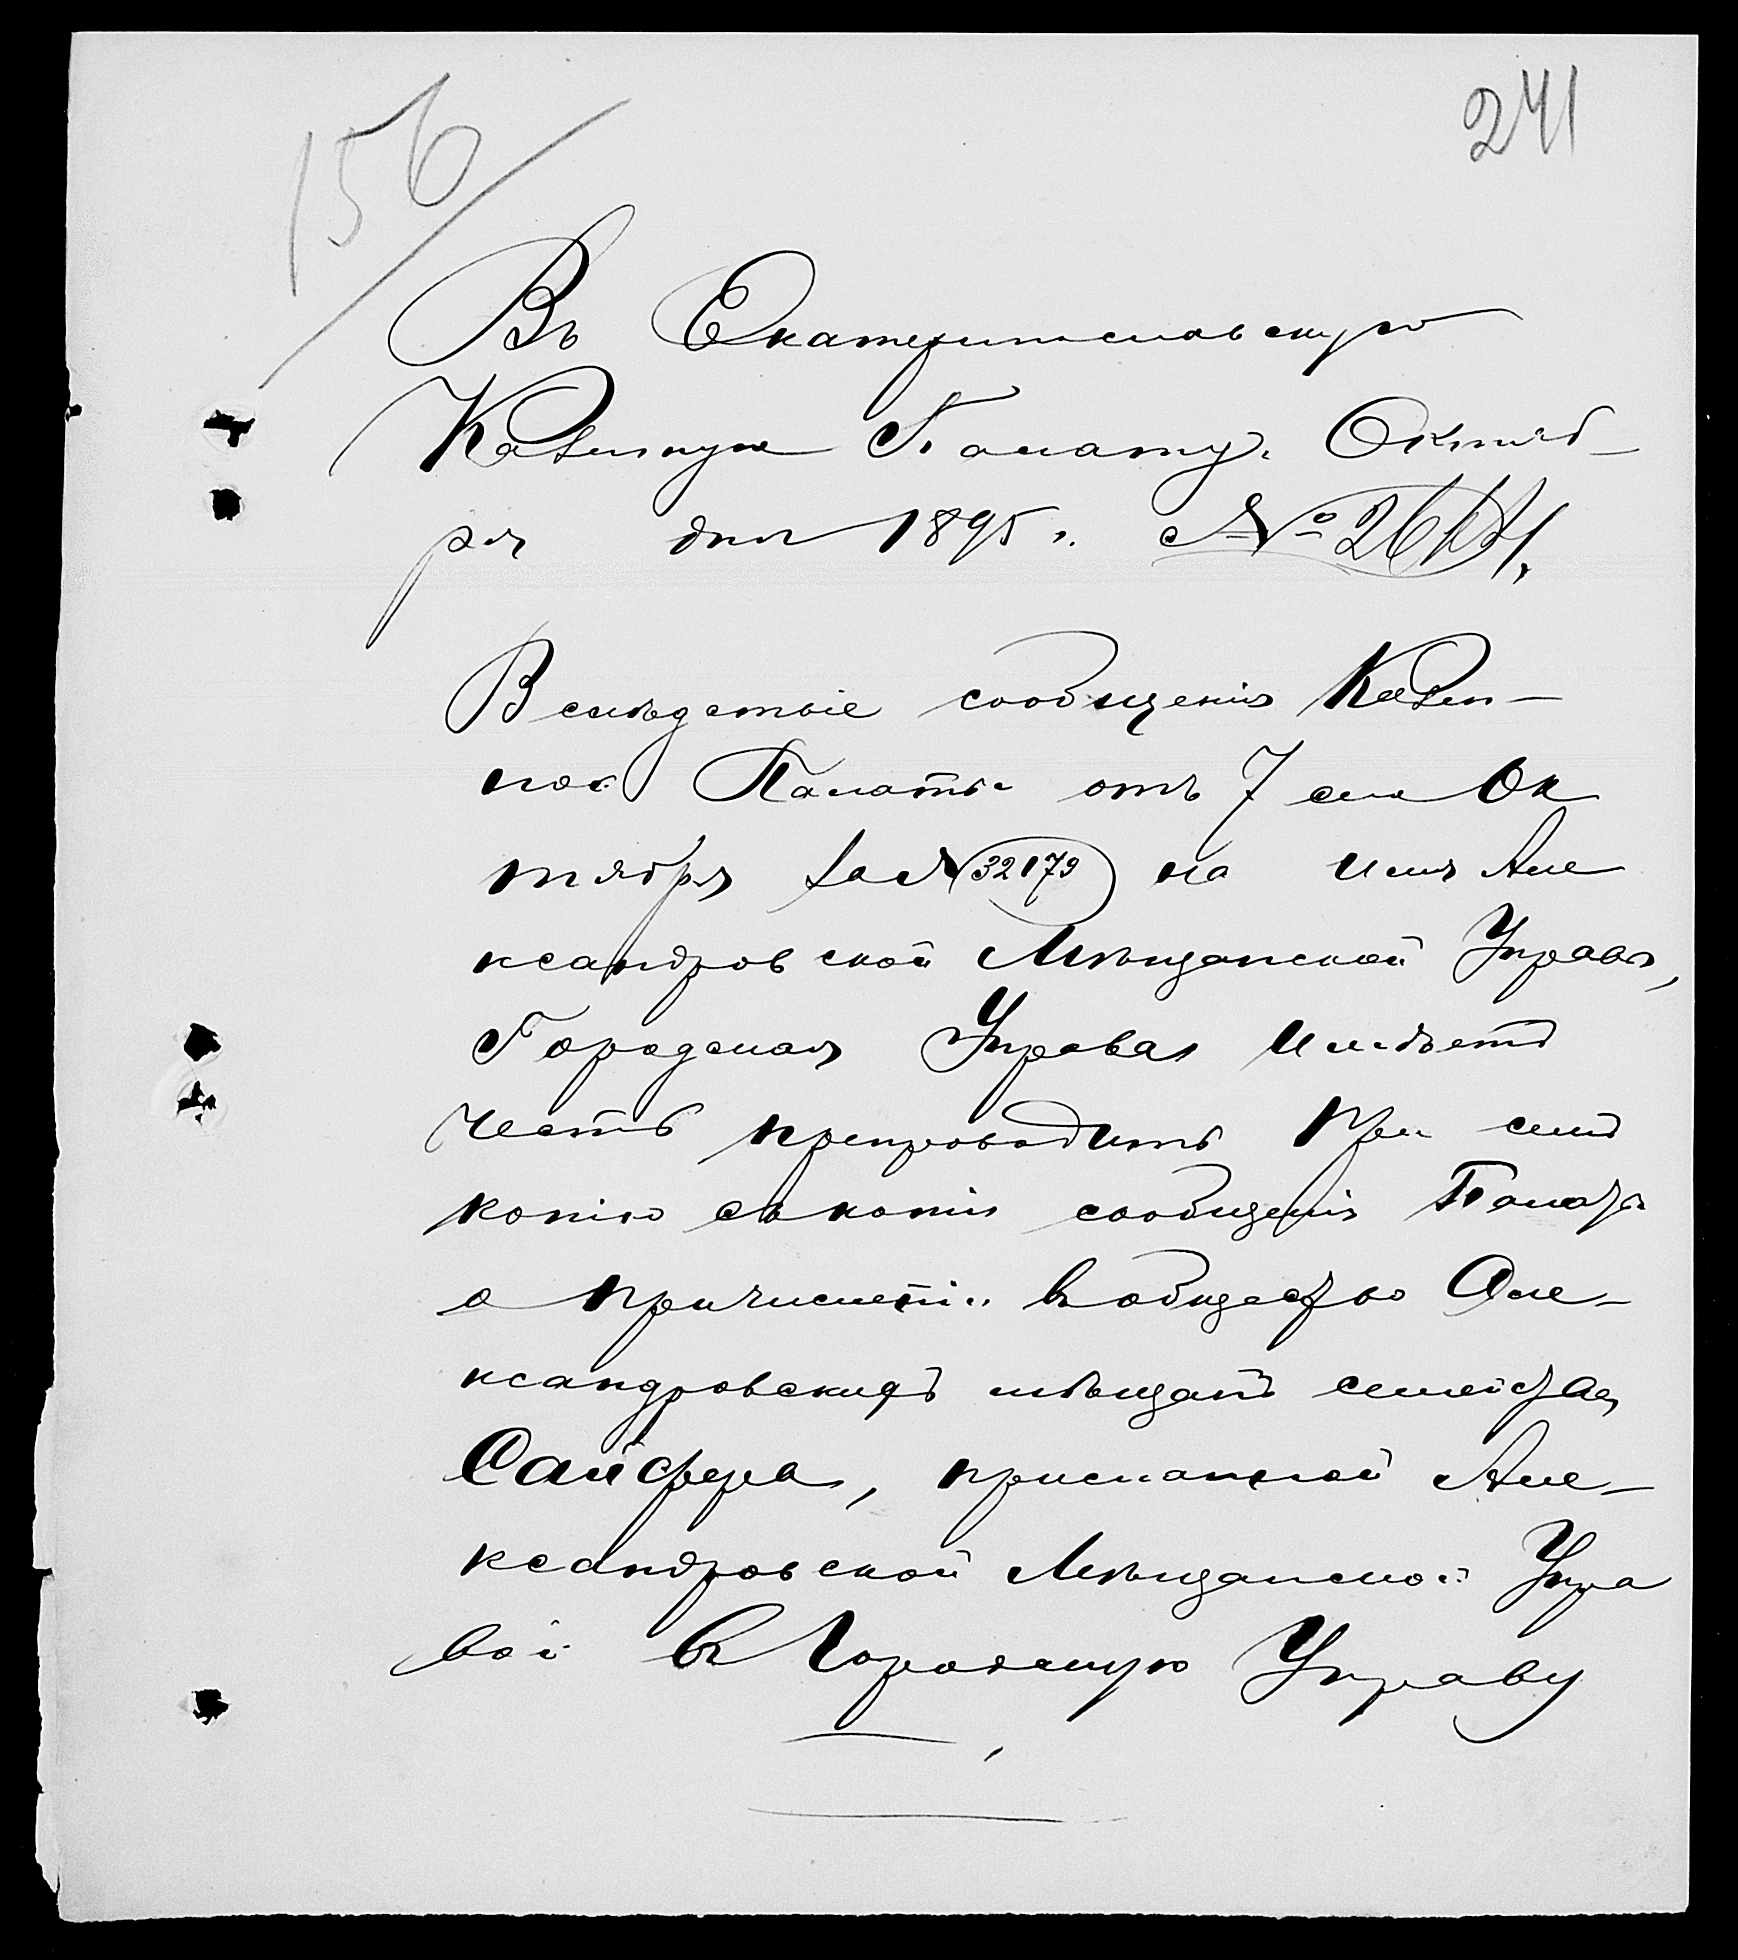 156
241
Въ Екатеринославскую
Казенную Палату. Октяб-
ря дня 1895 г. №
Вследствіе сообщенія Казен-
ной Палаты отъ 7 сего Ок
тября за № 32179 на имя Але
ксандровской Мѣщанской Управы,
Городская Управа имѣетъ
честь препроводить при семъ
копію съ копіи сообщенія Палаты
о причисленіи въ общество Але-
ксандровскихъ мѣщанъ семейства
Сайфера, присланной Але-
ксандровской Мѣщанской Упра
вой въ Городскую Управу